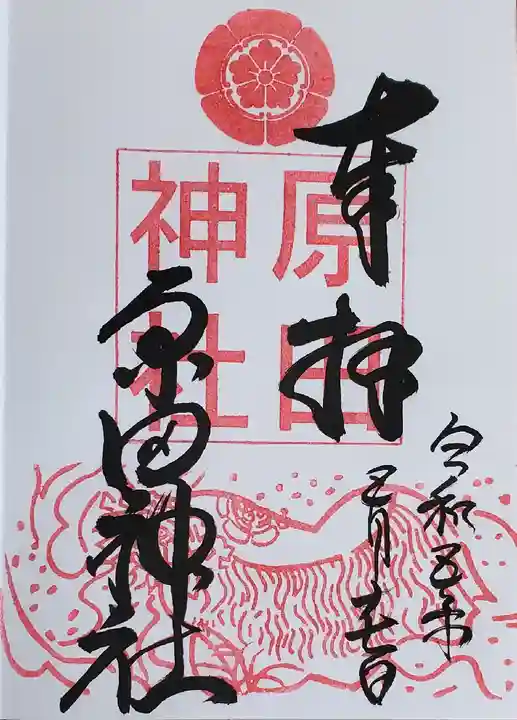 奉拝
原田神社
原田
神社
令和五年
五月